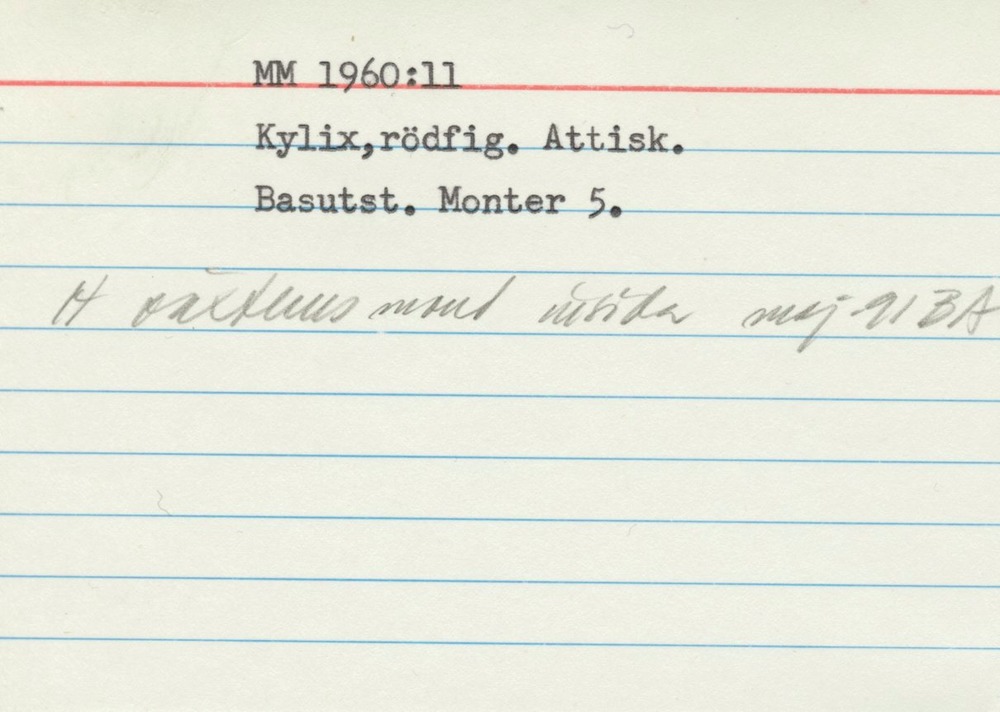 MM 1960:11
Kylix,rödfig. Attisk.
Basutst. Monter 5.
H mont insida maj -91 BA